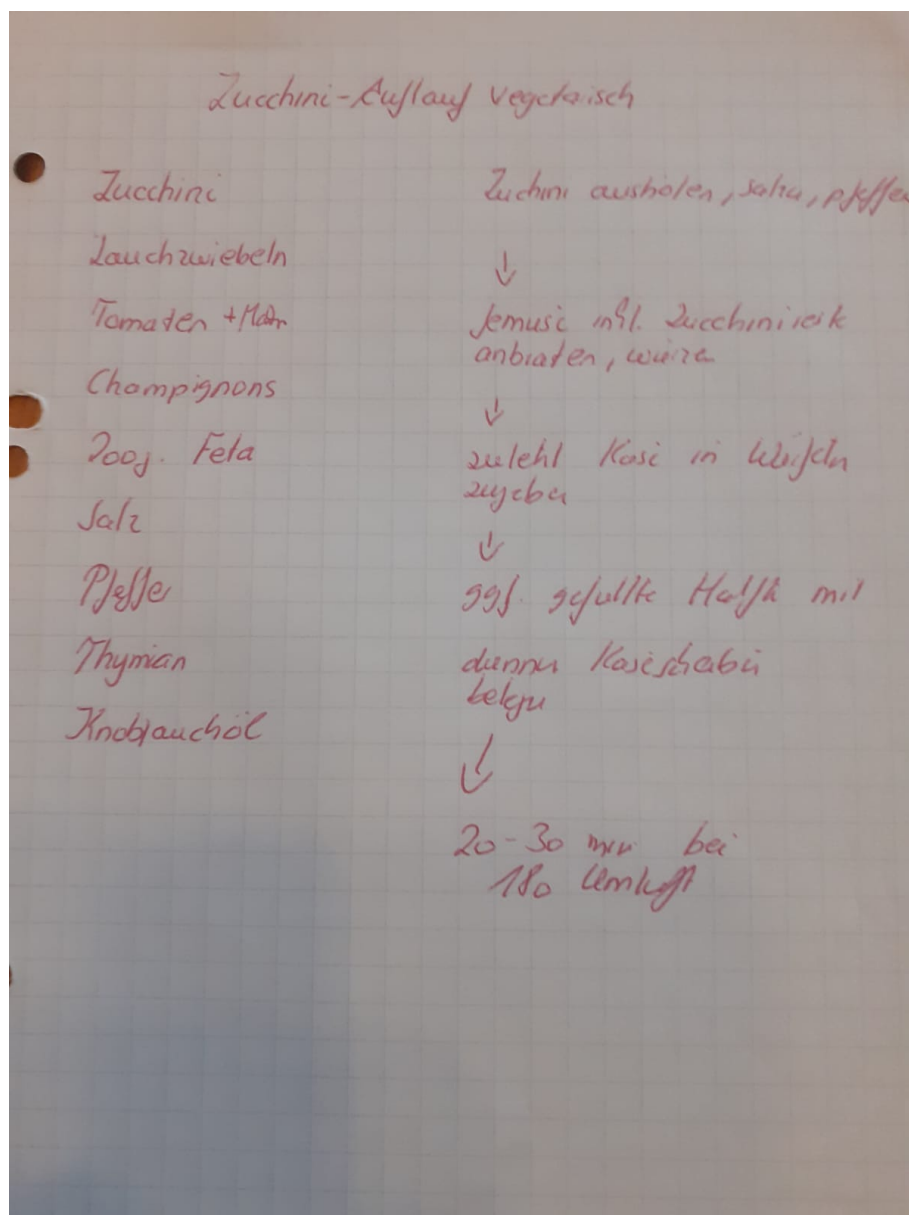 Zucchini-Auflauf vegetarisch
Zucchini
Lauchzwiebeln
Tomaten +
Champignons
200g. Feta
Salz
Pfeffer
Thymian
Knoblauchöl
Zuchini aushölen, salzen, pfeffern
↓
Gemüse inkl. Zucchinireste
anbraten, würzen
↓
zuletzt Käse in Würfeln
zugeben
↓
ggf. gefüllte Hälfte mit
dünnen Käsescheiben
belegen
↓
20-30 min bei
180 Umluft